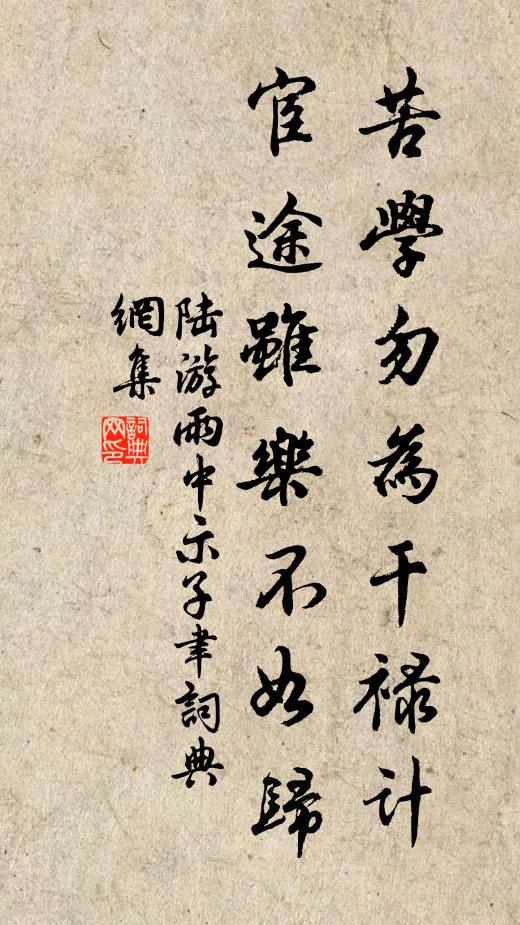 苦學勿為干禄计
宦途雖樂不如歸
陆游雨中示子聿詞典
網集
詞典網印